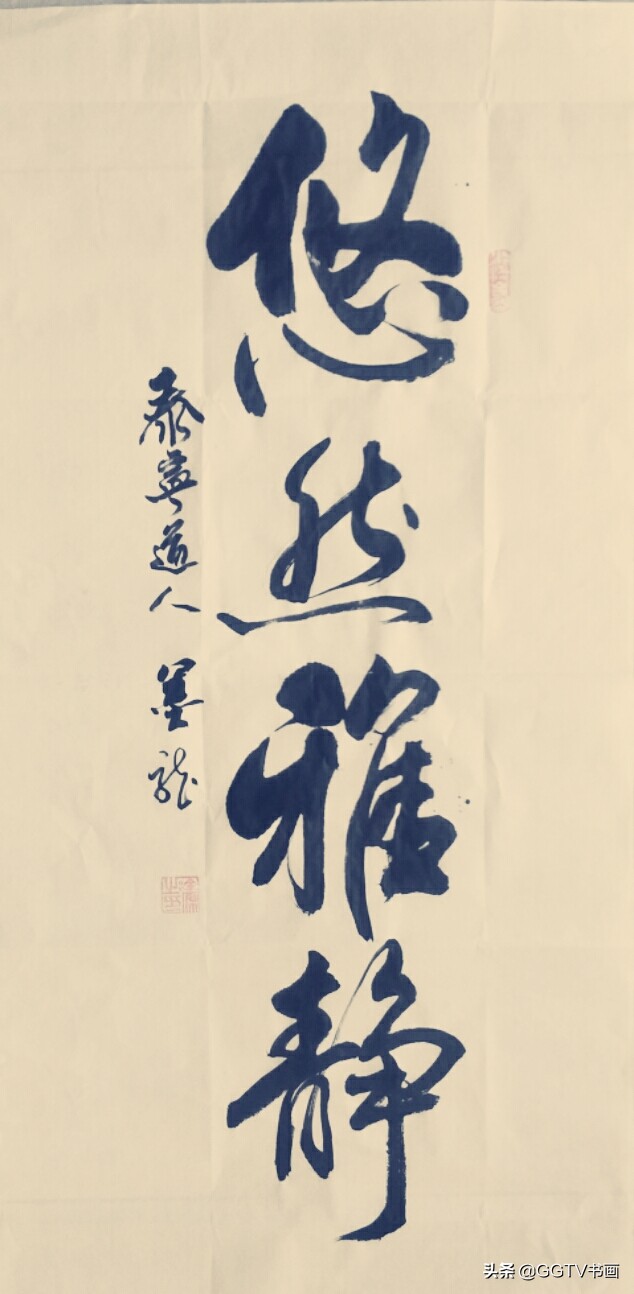 悠然雅静
泰寧道人 墨龙
头条 @GGTV书画